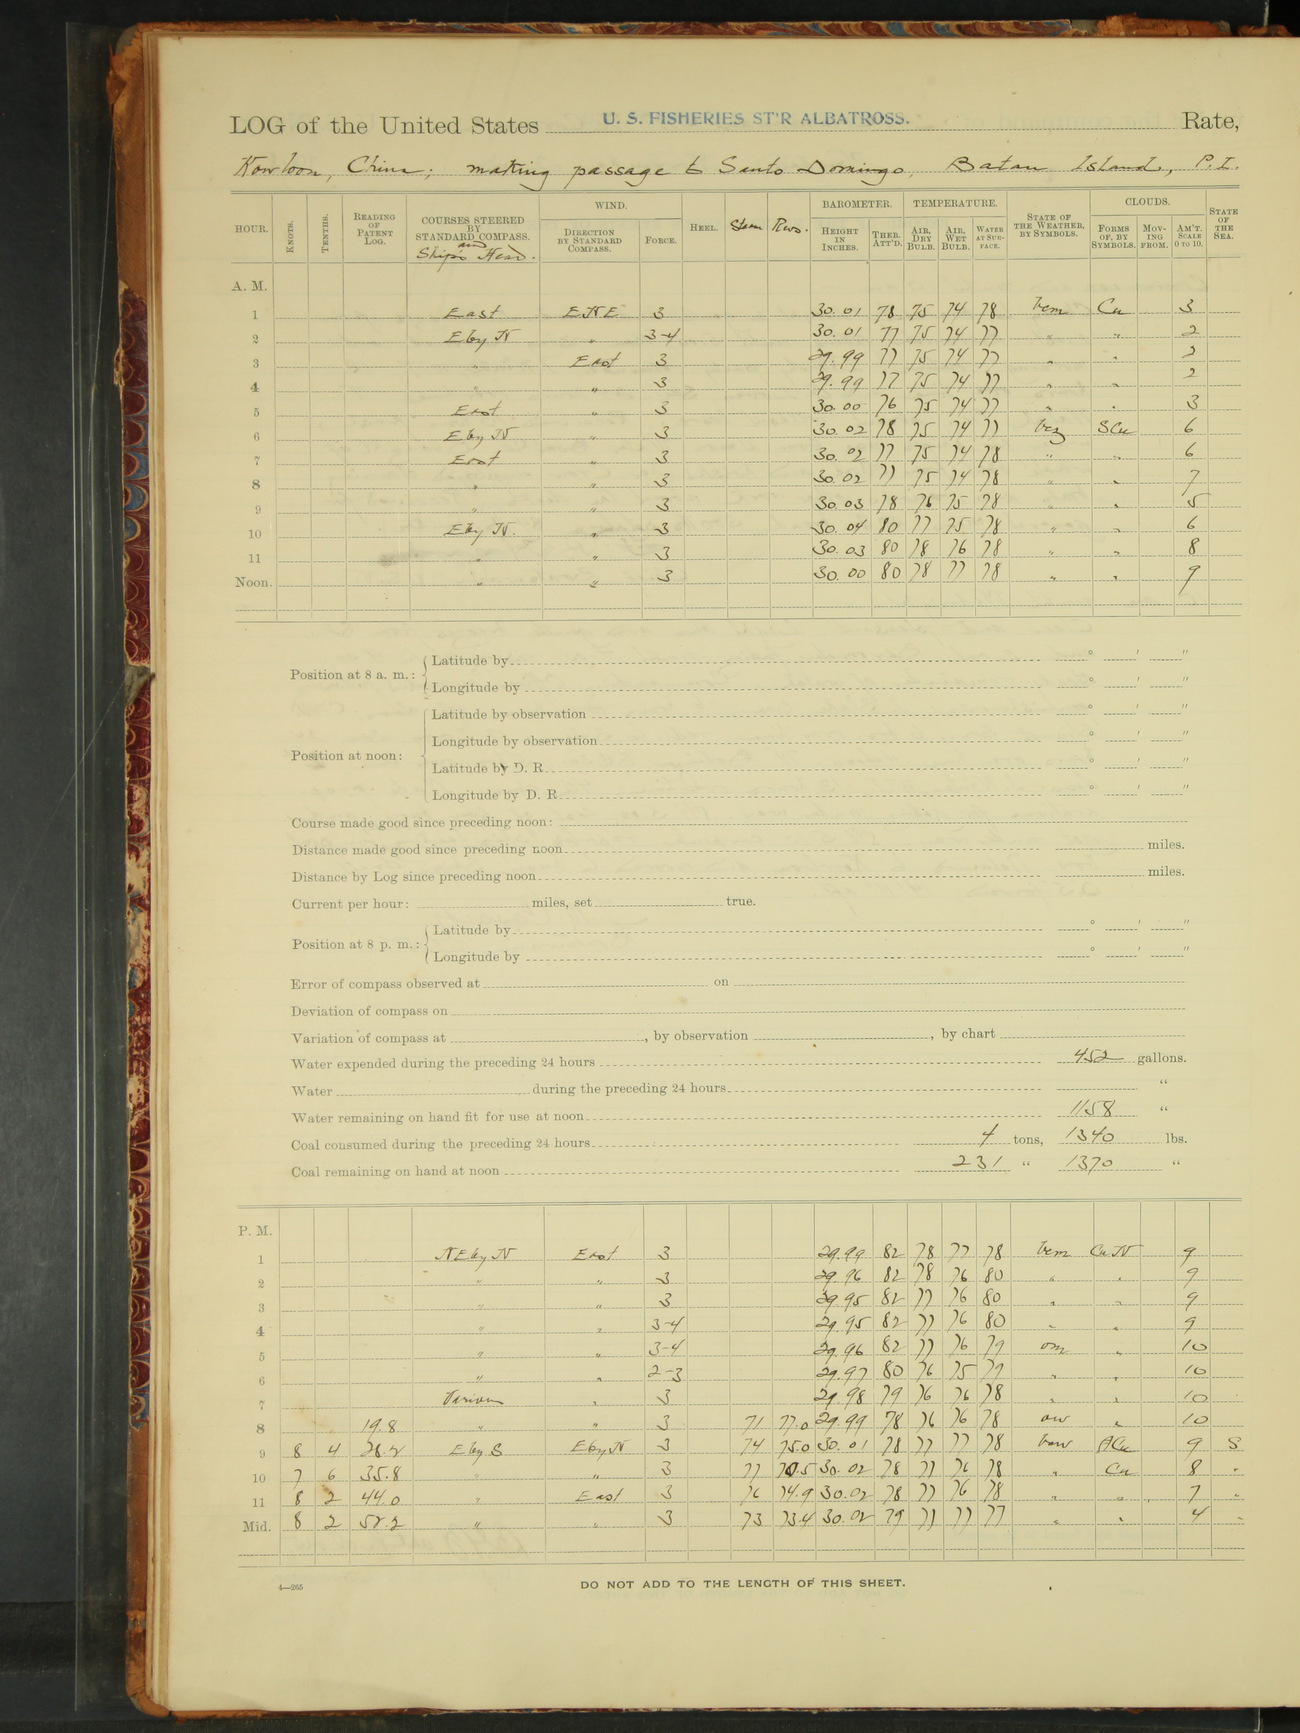 LOG of the United States U. S. FISHERIES ST'R ALBATROSS. Rate,
Kowloon, China; making passage to Santo Domingo, Batan Island, P. I.
HOUR. KNOTS. TENTHS. READING OF PATENT LOG. COURSES STEERED BY STANDARD COMPASS. and Ship's Head. WIND. DIRECTION BY STANDARD COMPASS. FORCE. HEEL. Steam Revs. BAROMETER. HEIGHT IN INCHES. THER. ATT'D. TEMPERATURE. AIR, DRY BULB. AIR, WET BULB. WATER AT SURFACE. STATE OF THE WEATHER, BY SYMBOLS. CLOUDS. FORMS OF, BY SYMBOLS. MOVING FROM. AM'T. SCALE 0 TO 10. STATE OF THE SEA.
A. M.
1 East ENE 3 30.01 78 75 74 78 bcm Cu 3
2 E by N " 3-4 30.01 77 75 74 77 " " 2
3 " East 3 29.99 77 75 74 77 " " 2
4 " " 3 29.99 77 75 74 77 " " 2
5 East " 3 30.00 76 75 74 77 " " 3
6 E by N " 3 30.02 78 75 74 77 bcz SCu 6
7 East " 3 30.02 77 75 74 78 " " 6
8 " " 3 30.02 77 75 74 78 " " 7
9 " " 3 30.03 78 76 75 78 " " 5
10 E by N. " 3 30.04 80 77 75 78 " " 6
11 " " 3 30.03 80 78 76 78 " " 8
Noon. " " 3 30.00 80 78 77 78 " " 9
Position at 8 a. m.: Latitude by ° ' "
Longitude by ° ' "
Position at noon: Latitude by observation ° ' "
Longitude by observation ° ' "
Latitude by D. R. ° ' "
Longitude by D. R. ° ' "
Course made good since preceding noon:
Distance made good since preceding noon miles.
Distance by Log since preceding noon miles.
Current per hour: miles, set true.
Position at 8 p. m.: Latitude by ° ' "
Longitude by ° ' "
Error of compass observed at on
Deviation of compass on
Variation of compass at , by observation , by chart
Water expended during the preceding 24 hours 452 gallons.
Water during the preceding 24 hours "
Water remaining on hand fit for use at noon 1158 "
Coal consumed during the preceding 24 hours 4 tons, 1340 lbs.
Coal remaining on hand at noon 231 " 1370 "
P. M.
1 NE by N East 3 29.99 82 78 77 78 bcm Cu N 9
2 " " 3 29.96 82 78 76 80 " " 9
3 " " 3 29.95 82 77 76 80 " " 9
4 " " 3-4 29.95 82 77 76 80 " " 9
5 " " 3-4 29.96 82 77 76 79 om " 10
6 " " 2-3 29.97 80 76 75 77 " " 10
7 Various " 3 29.98 79 76 76 78 " " 10
8 19.8 " " 3 71 77.0 29.99 78 76 76 78 " 10
9 8 4 28.2 E by S E by N 3 74 75.0 30.01 78 77 77 78 ACu 9 S
10 7 6 35.8 " " 3 77 70.5 30.02 78 77 76 78 " Cu 8 "
11 8 2 44.0 " East 3 76 74.9 30.02 78 77 76 78 " " 7 "
Mid. 8 2 52.2 " " 3 73 73.4 30.02 79 77 77 77 " " 4 "
4—265 DO NOT ADD TO THE LENGTH OF THIS SHEET.